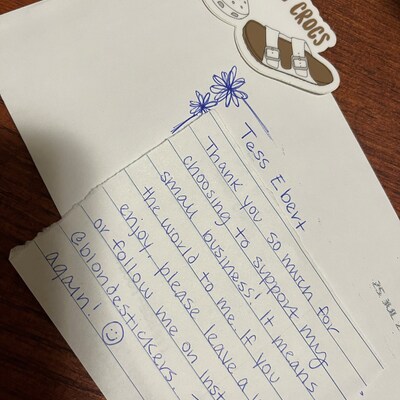 CROCS
Tess Ebert
Thank you so much for
choosing to support my
small business! It means
the world to me. If you
enjoy, please leave a
or follow me on Inst
@blondestickers.
again! ☺
25 JUL 2